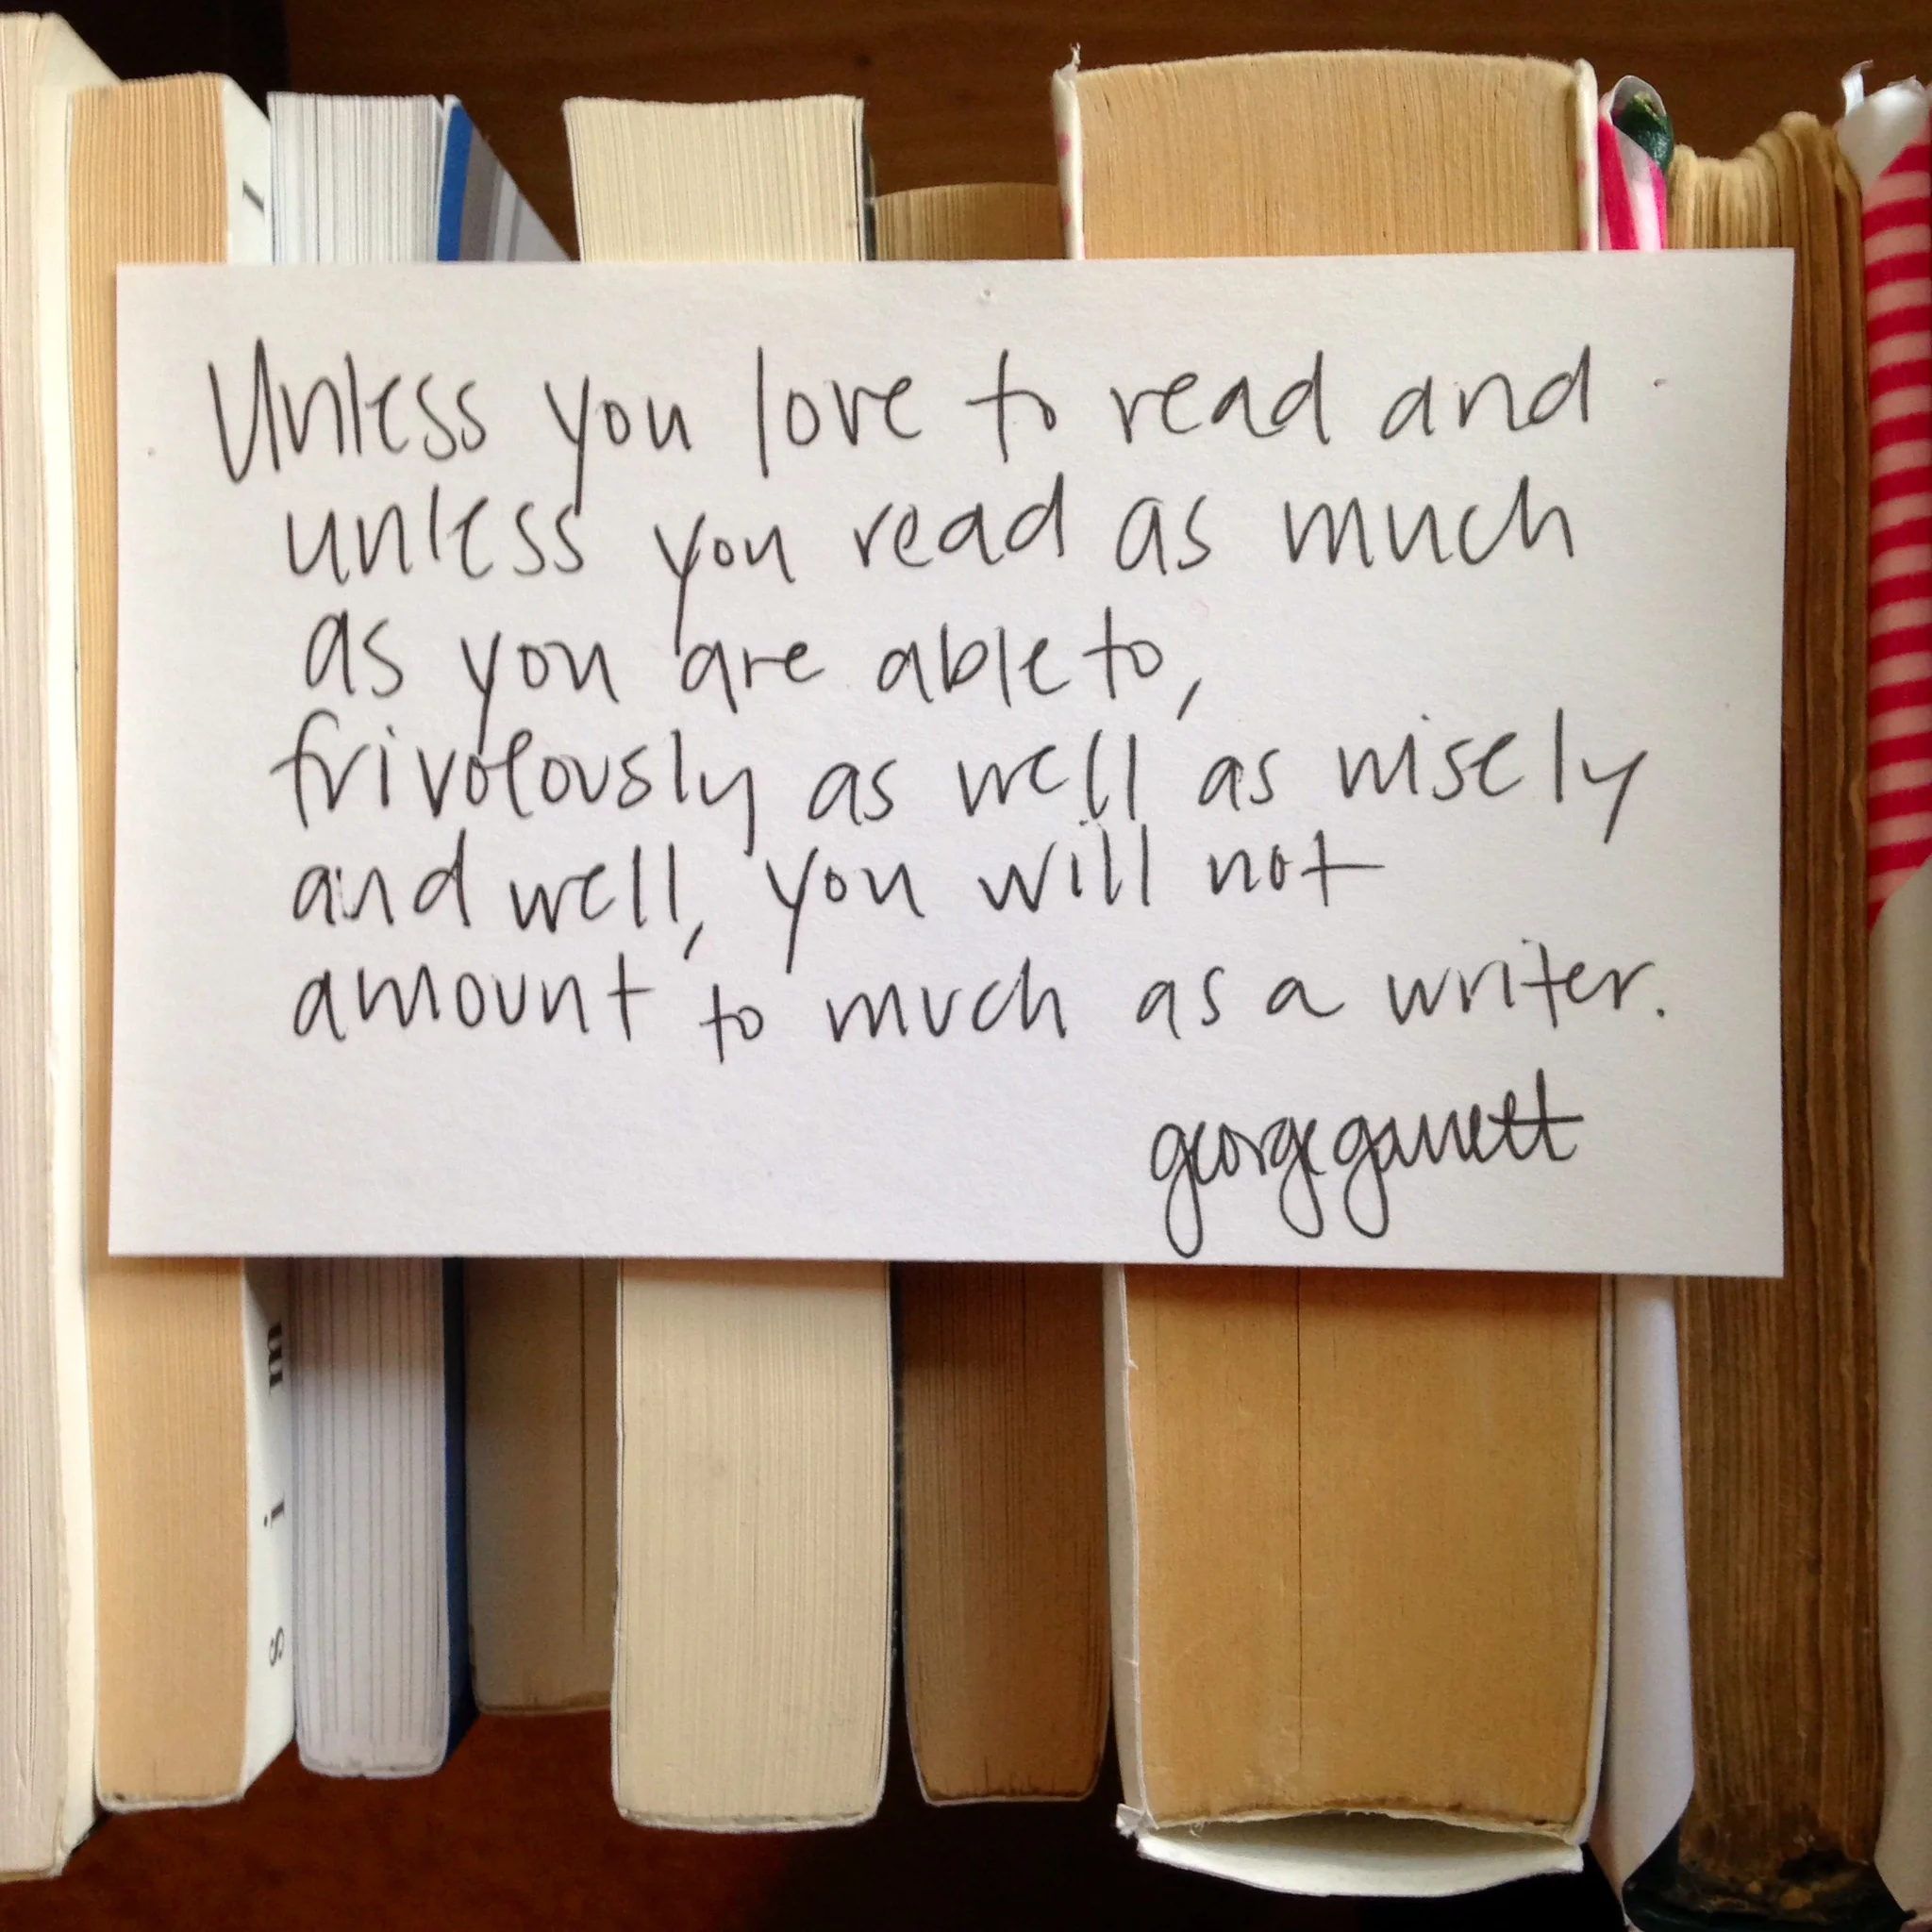 Unless you love to read and
unless you read as much
as you are able to,
frivolously as well as wisely
and well, you will not
amount to much as a writer.
george garrett
m
i
s